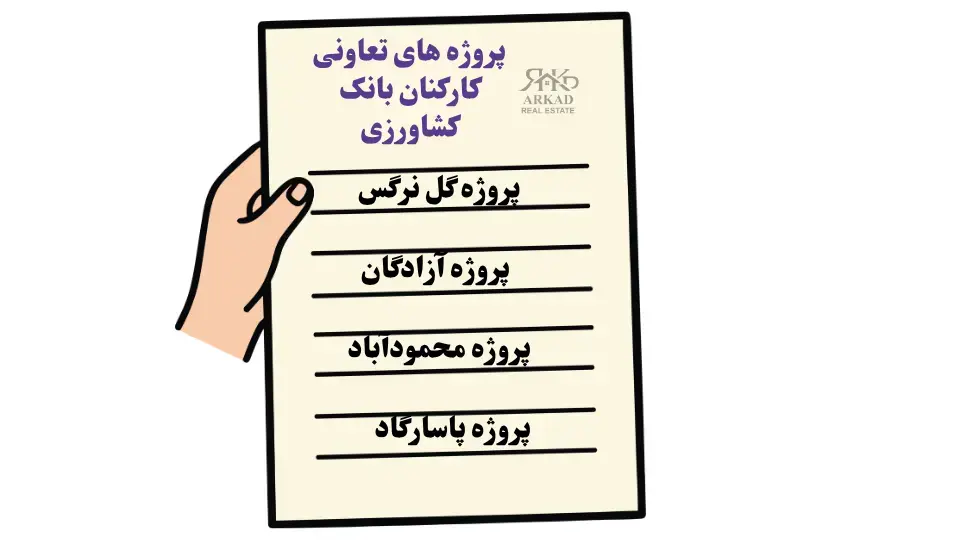 پروژه های تعاونی
کارکنان بانک
کشاورزی
ARKAD
REAL ESTATE
پروژه گل نرگس
پروژه آزادگان
پروژه محمودآباد
پروژه پاسارگاد